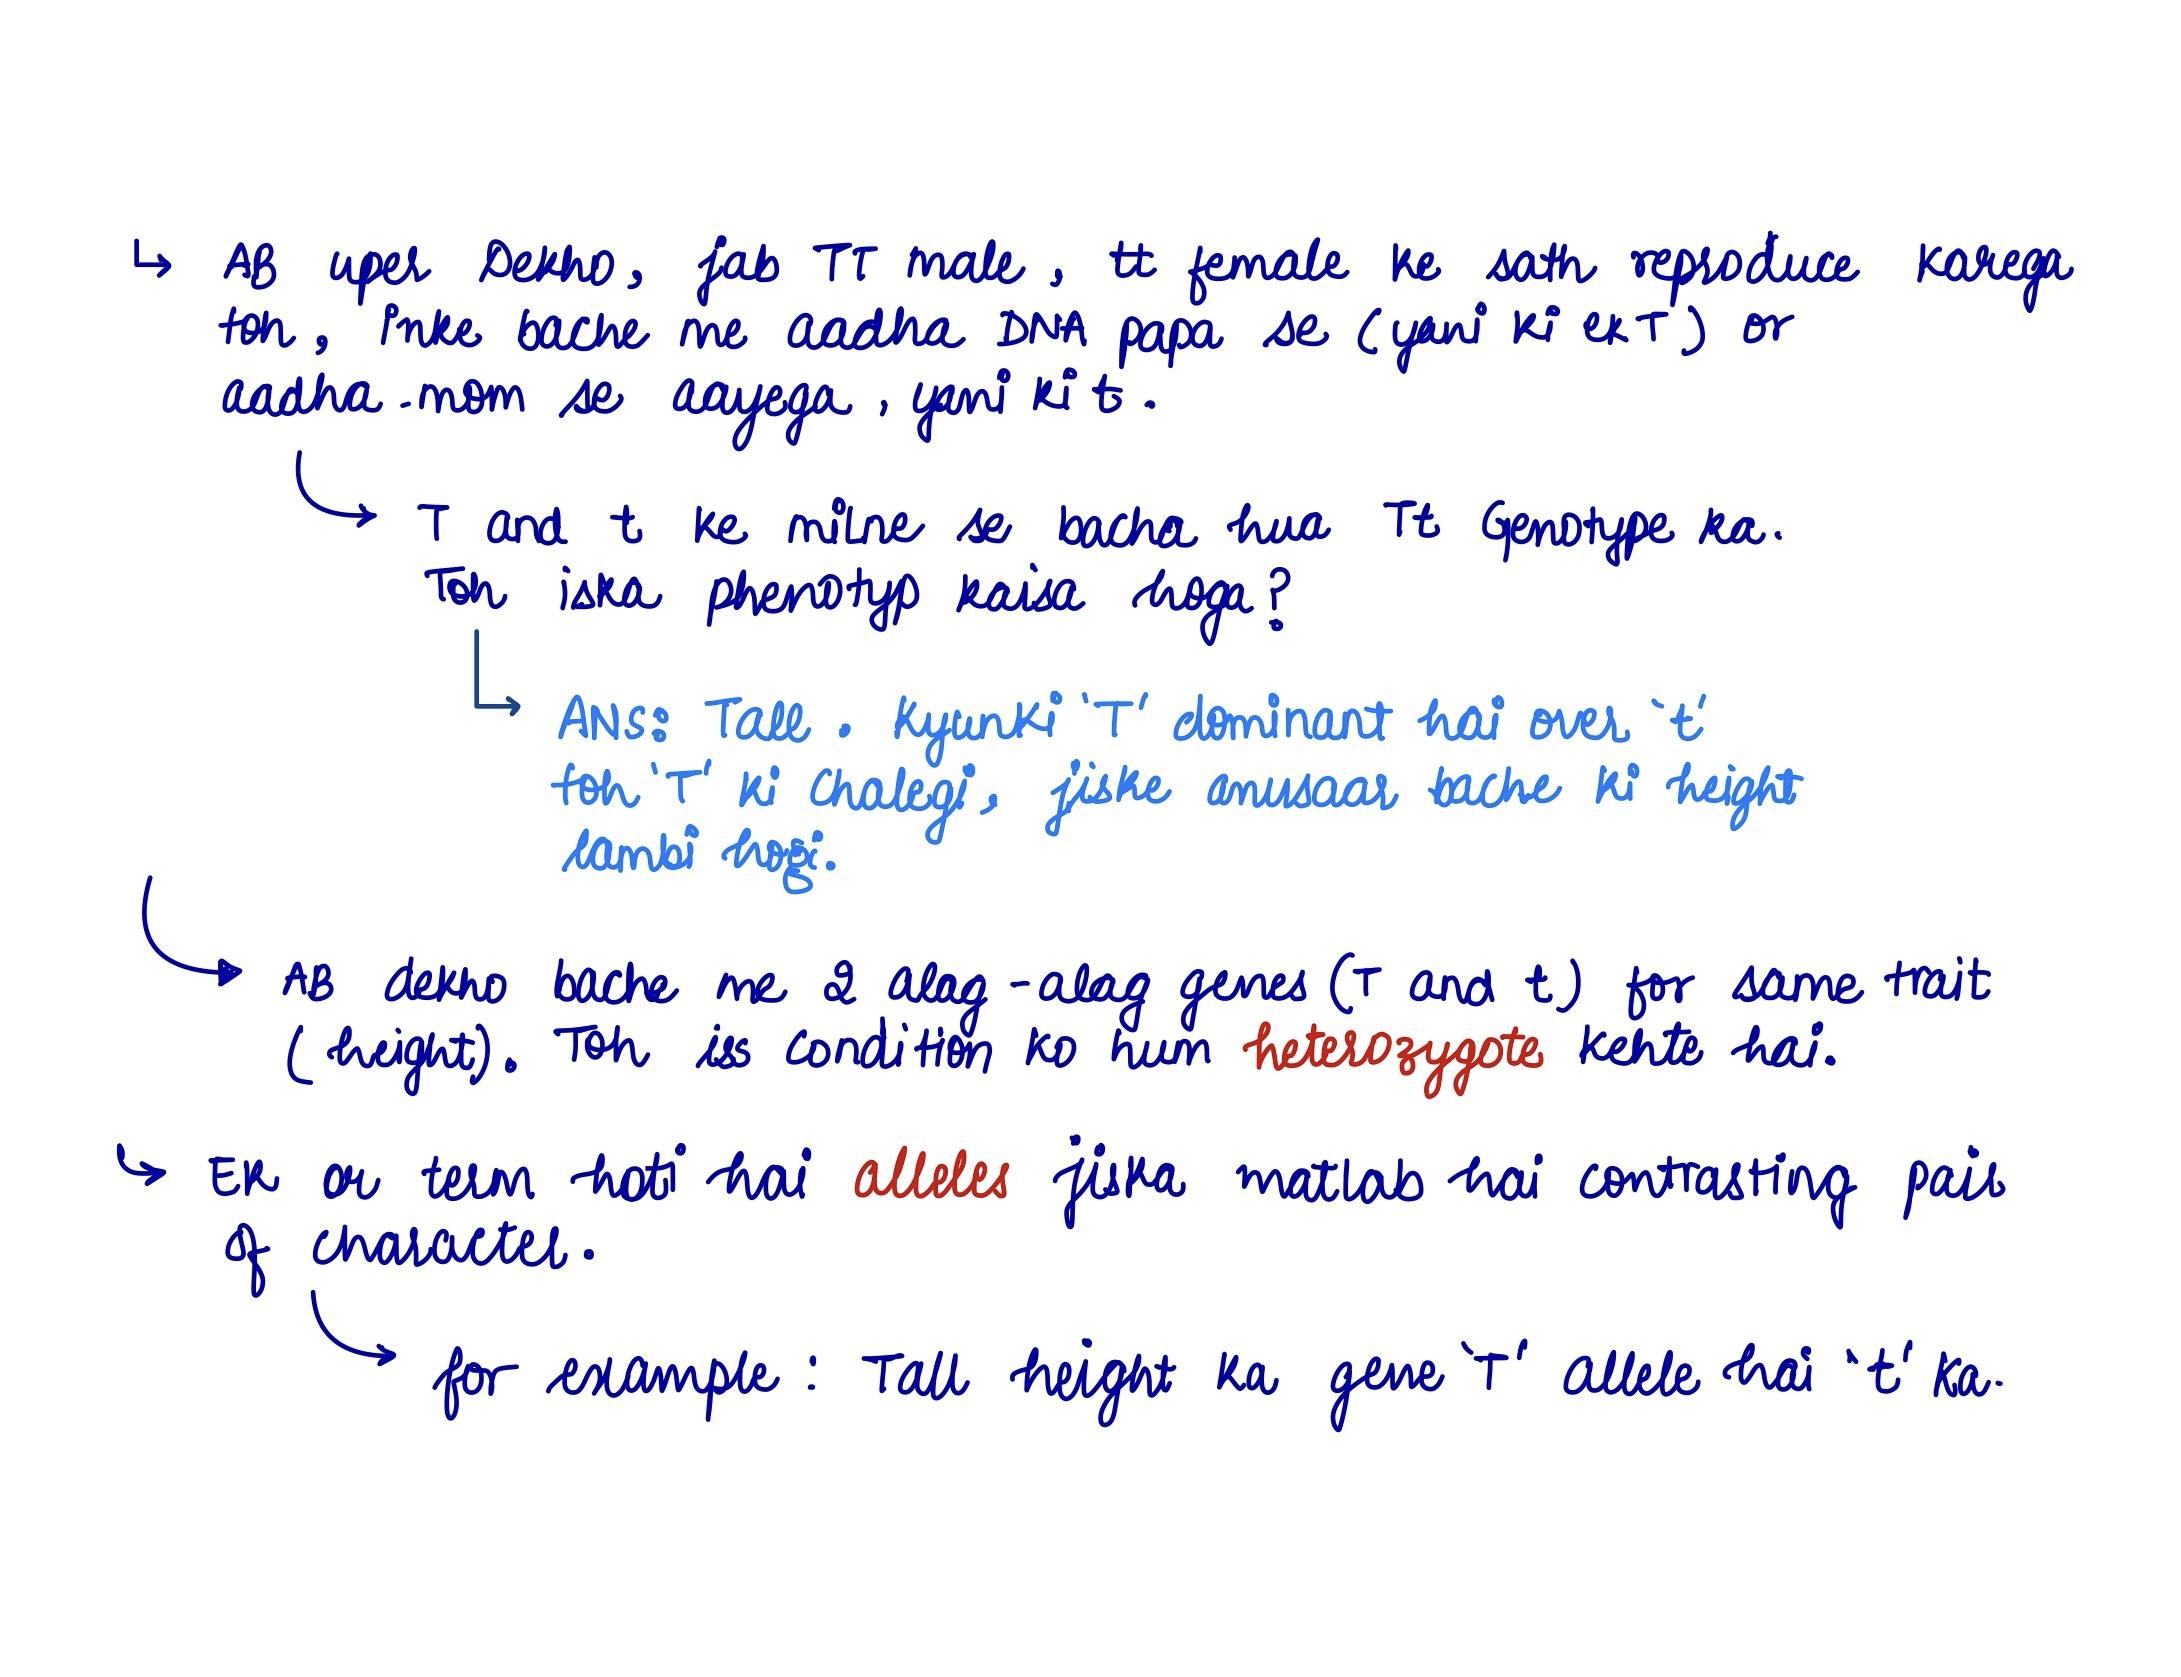 ↳ AB uper Dekho, jab TT male, tt female ke sath reproduce karega
toh, inke bache me aadha DNA papa se (yani ki ek T) or
aadha mom se aayega, yani ki t.
T and t ke milne se bacha hua Tt Genotype ka.
Toh iska phenotyp kaisa hoga?
ANS: Tall. Kyunki 'T' dominant hai over 't'
toh 'T' ki chalegi, jiske anusaar bache ki height
lambi hogi.
AB dekho bache me 2 alag-alag genes (T and t) for same trait
(height). Toh iss condition ko hum heterozygote kehte hai.
Ek or term hoti hai alleles jiska matlab hai contrasting pair
of character.
for example: Tall height ka gene 'T' allele hai 't' ka.